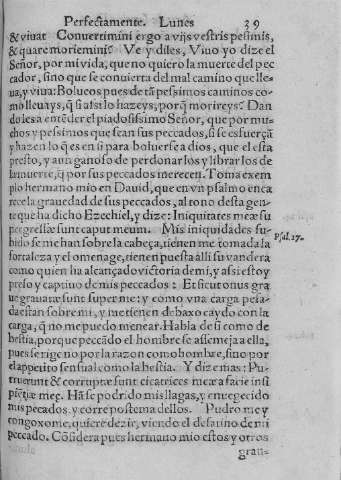 Perfectamente. Lunes 39
& viuat Conuertimini ergo a vijs vestris pesimis,
& quare moriemini? Ve y diles, Viuo yo dize el
Señor, por mi vida, que no quiero la muerte del pec
cador, sino que se conuierta del mal camino que lle-
ua, y viua: Bolueos pues de tã pessimos caminos co-
mo lleuays, q̃ si assi lo hazeys, porq̃ morireys? Dan
doles a entẽder el piadosissimo Señor, que por mu-
chos y pessimos que sean sus peccados, si se esfuerçã
y hazen lo q̃ es en si para boluerse a dios, que el esta
presto, y aun ganoso de perdonarlos y librarlos de
la muerte, q̃ por sus peccados merecen. Toma exem
plo hermano mio en Dauid, que en vn psalmo enca
rece la grauedad de sus peccados, al tono desta gen-
te que ha dicho Ezechiel, y dize: Iniquitates meæ su
pergressæ sunt caput meum. Mis iniquidades su-
bido se me han sobre la cabeça, tienen me tomada la
Psal. 37.
fortaleza y el omenage, tienen puesta alli su vandera
como quien ha alcançado victoria de mi, y assi estoy
preso y captiuo de mis peccados: Et sicut onus gra
ue grauatæ sunt super me: y como vna carga pesa-
da estan sobre mi, y me tienen debaxo caydo con la
carga, q̃ no me puedo menear. Habla de si como de
bestia, porque peccãdo el hombre se assemeja a ella,
pues se rige no por la razon como hombre, sino por
el appetito sensual como la bestia. Y dize mas: Pu-
truerunt & corruptæ sunt cicatrices meæ a facie insi
piẽtiæ meę. Hã se podrido mis llagas, y enuegecido
mis peccados, y corre postema dellos. Pudro me y
congoxome, quiere dezir, viendo el desatino de mi
peccado. Cõsidera pues hermano mio estos y otros
grau-